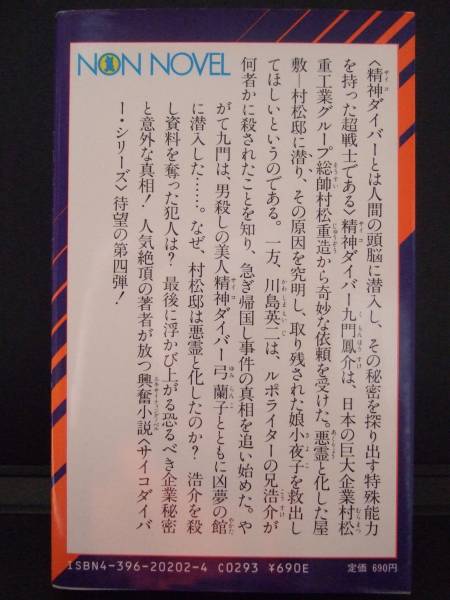 NON NOVEL
〈精神ダイバーとは人間の頭脳に潜入し、その秘密を探り出す特殊能力
を持った超戦士である〉精神ダイバー九門鳳介は、日本の巨大企業村松
重工業グループ総帥村松重造から奇妙な依頼を受けた。悪霊と化した屋
敷―村松邸に潜り、その原因を究明し、取り残された娘小夜子を救出し
てほしいというのである。一方、川島英二は、ルポライターの兄浩介が
何者かに殺されたことを知り、急ぎ帰国し事件の真相を追い始めた。や
がて九門は、男殺しの美人精神ダイバー弓蘭子とともに凶夢の館
に潜入した……。なぜ、村松邸は悪霊と化したのか？ 浩介を殺
し資料を奪った犯人は？ 最後に浮かび上がる恐るべき企業秘密
と意外な真相！ 人気絶頂の著者が放つ興奮小説〈サイコダイバ
ー・シリーズ〉待望の第四弾！
ISBN4-396-20202-4 C0293 ¥690E 定価 690円